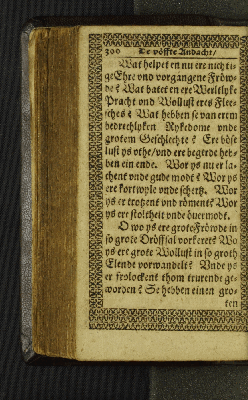 300 De vöffte Andacht/
Wat helpet en nu ere nichti-
ge Ehre vnd vorgangene Fröw-
de? Wat batet en ere Weltlyke
Pracht vnd Wollust eres Flee-
sches? Wat hebben se van erem
bedrechlyken Rykedome vnde
grotem Geschlechte? Ere böse
lust ys othe/vnd ere begerde heb-
ben ein ende. Wor ys nu er la-
chent vnde gude mode? Wor ys
ere kortwyle vnde schertz. Wor
ys er trotzent vnd röment? Wor
ys ere stoltheit vnde övermodt.
O wo ys ere grote Fröwde in
so grote Dröffsal vorkeret? Wo
ys ere grote Wollust in so groth
Elende vorwandelt? Vnde ys
er frolockent thom trurende ge-
worden? Se hebben einen gro-
ten